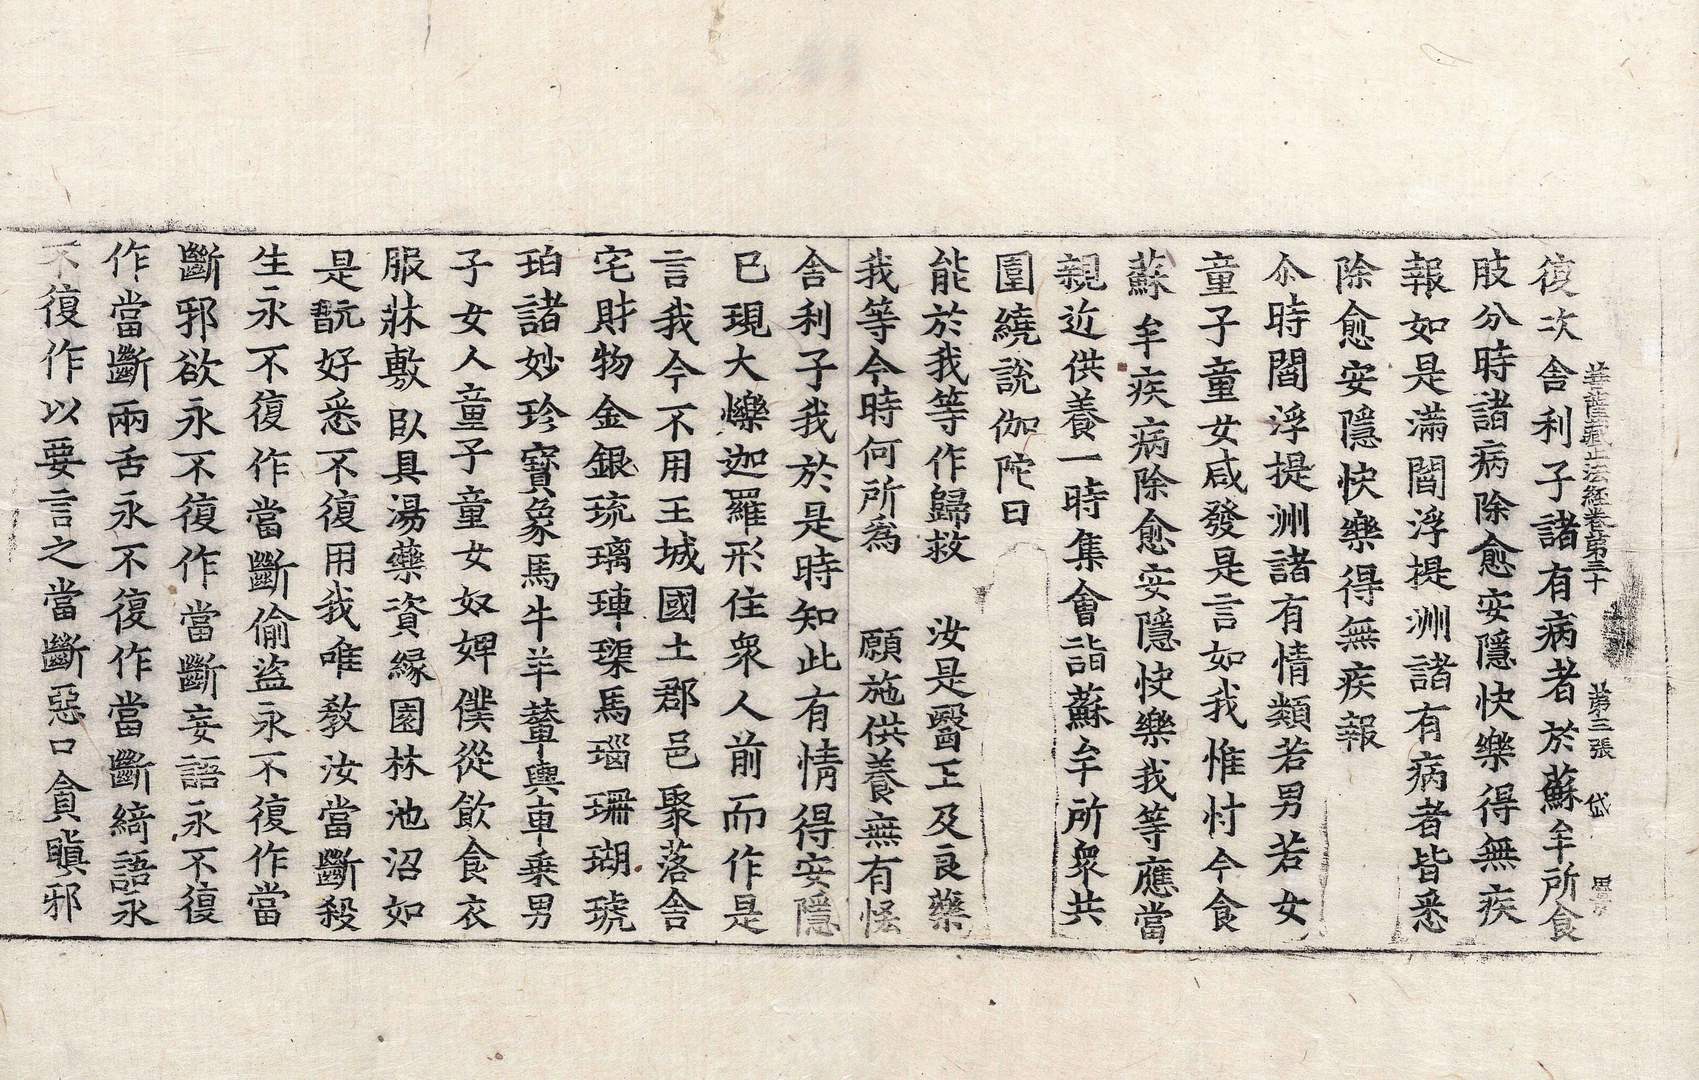 菩薩藏正法經卷第三十 第三張 岱
復次舍利子諸有病者於蘇牟所食
肢分時諸病除愈安隱快樂得無疾
報如是滿閻浮提洲諸有病者皆悉
除愈安隱快樂得無疾報
尒時閻浮提洲諸有情類若男若女
童子童女咸發是言如我惟忖今食
蘇牟疾病除愈安隱快樂我等應當
親近供養一時集會詣蘇牟所衆共
圍繞說伽陀曰
能於我等作歸救 汝是醫王及良藥
我等今時何所爲 願施供養無有恡
舍利子我於是時知此有情得安隱
已現大爍迦羅形住衆人前而作是
言我今不用王城國土郡邑聚落舍
宅財物金銀琉璃𤥭璖馬瑙珊瑚琥
珀諸妙珍寶象馬牛羊輦輿車乗男
子女人童子童女奴婢僕從飲食衣
服牀敷臥具湯藥資緣園林池沼如
是翫好悉不復用我唯教汝當斷殺
生永不復作當斷偷盜永不復作當
斷邪欲永不復作當斷妄語永不復
作當斷兩舌永不復作當斷綺語永
不復作以要言之當斷惡口貪瞋邪